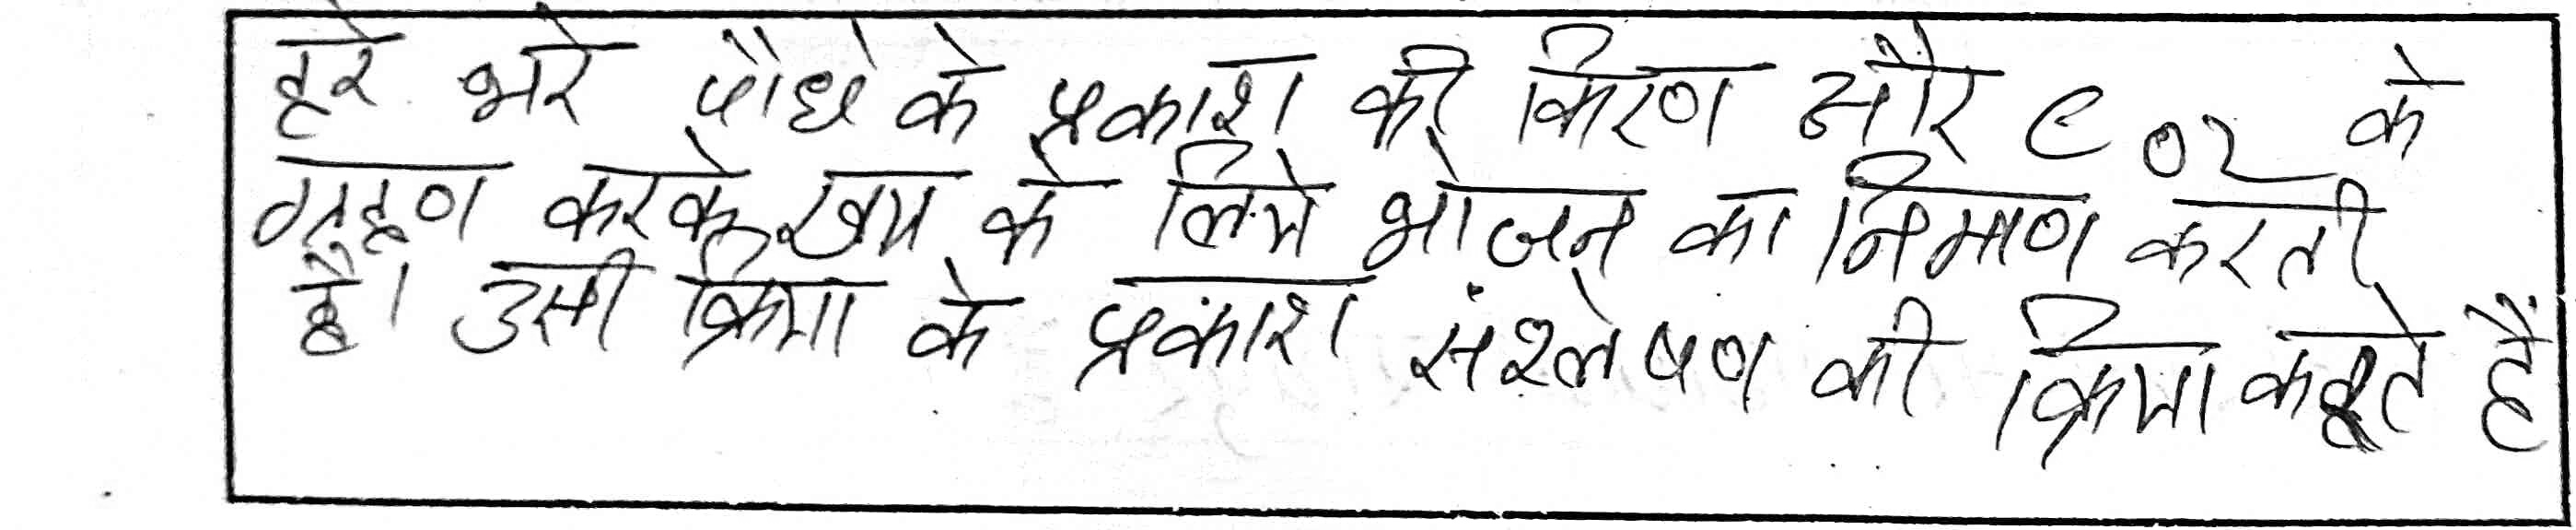 हरे भरे पौधे के प्रकाश की किरण और CO2 के
ग्रहण करके स्वय के लिये भोजन का निमाण करती
है। उसी क्रिया के प्रकाश संश्लेषण की क्रिया कहते हैं